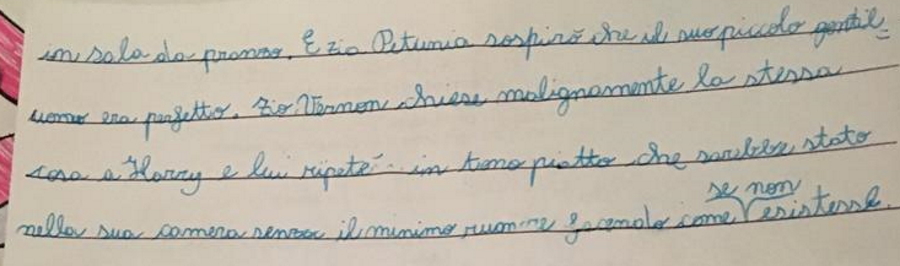 in sala da pranzo. E zia Petunia sospirò che il suo piccolo gentil=
uomo era perfetto. Zio Vernon chiese malignamente la stessa
cosa a Harry e lui ripeté in tono piatto che sarebbe stato
nella sua camera senza il minimo rumore facendo come se non esistesse.